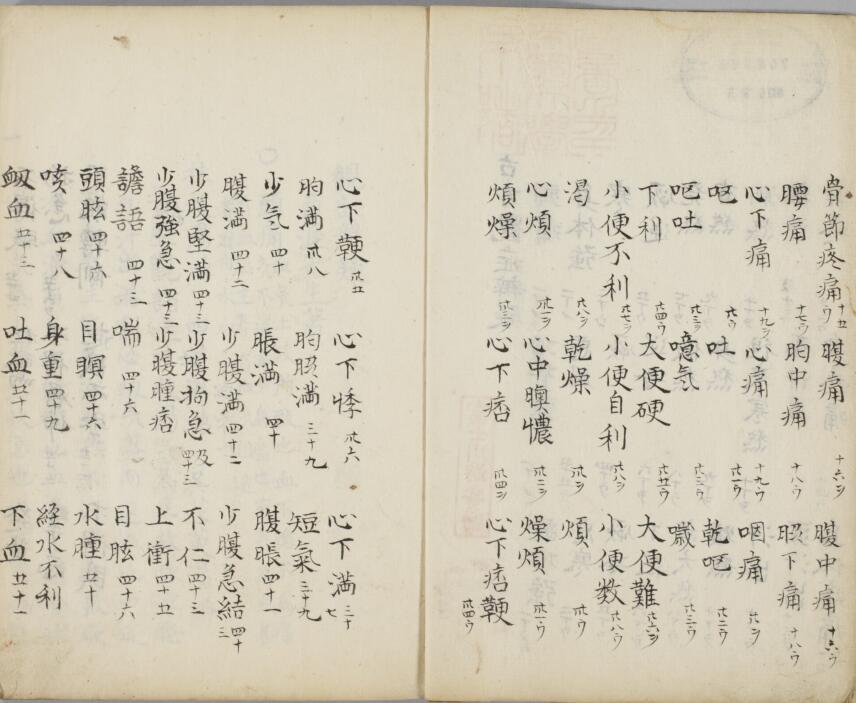 骨節疼痛 十五ウ 腹痛 十六ヲ 腹中痛 十六ウ
腰痛 十七ウ 胸中痛 十八ウ 脇下痛 十八ウ
心下痛 十九ヲ 心痛 十九ウ 咽痛 廿ヲ
呕 廿ウ 吐 廿一ウ 乾呕 廿二ウ
呕吐 廿三ヲ 噫気 廿三ウ 噦 廿三ウ
下利 廿四ウ 大便硬 廿五ウ 大便難 廿六ヲ
小便不利 小便自利 廿八ヲ 小便数 廿八ウ
渇 廿八ヲ 乾燥 卅ヲ 煩 卅ウ
心煩 卅一ヲ 心中懊憹 卅二ヲ 燥煩 卅一ウ
煩燥 卅三ヲ 心下痞 卅四ヲ 心下痞鞕 卅四ウ
心下鞕 卅五 心下悸 卅六 心下満 三十七
胸満 卅八 胸脇満 三十九 短氣 三十九
少気 四十 脹満 四十 腹脹 四十一
腹満 四十二 少腹満 四十二 少腹急結 四十三
少腹堅満 四十三 少腹拘急 四十三 不仁 四十三
少腹強急 四十三 少腹腫痞 上衝 四十五
譫語 四十三 喘 四十六 目眩 四十六
頭眩 四十六 目瞑 四十六 水腫 五十
咳 四十八 身重 四十九 経水不利
衄血 五十三 吐血 五十一 下血 五十一